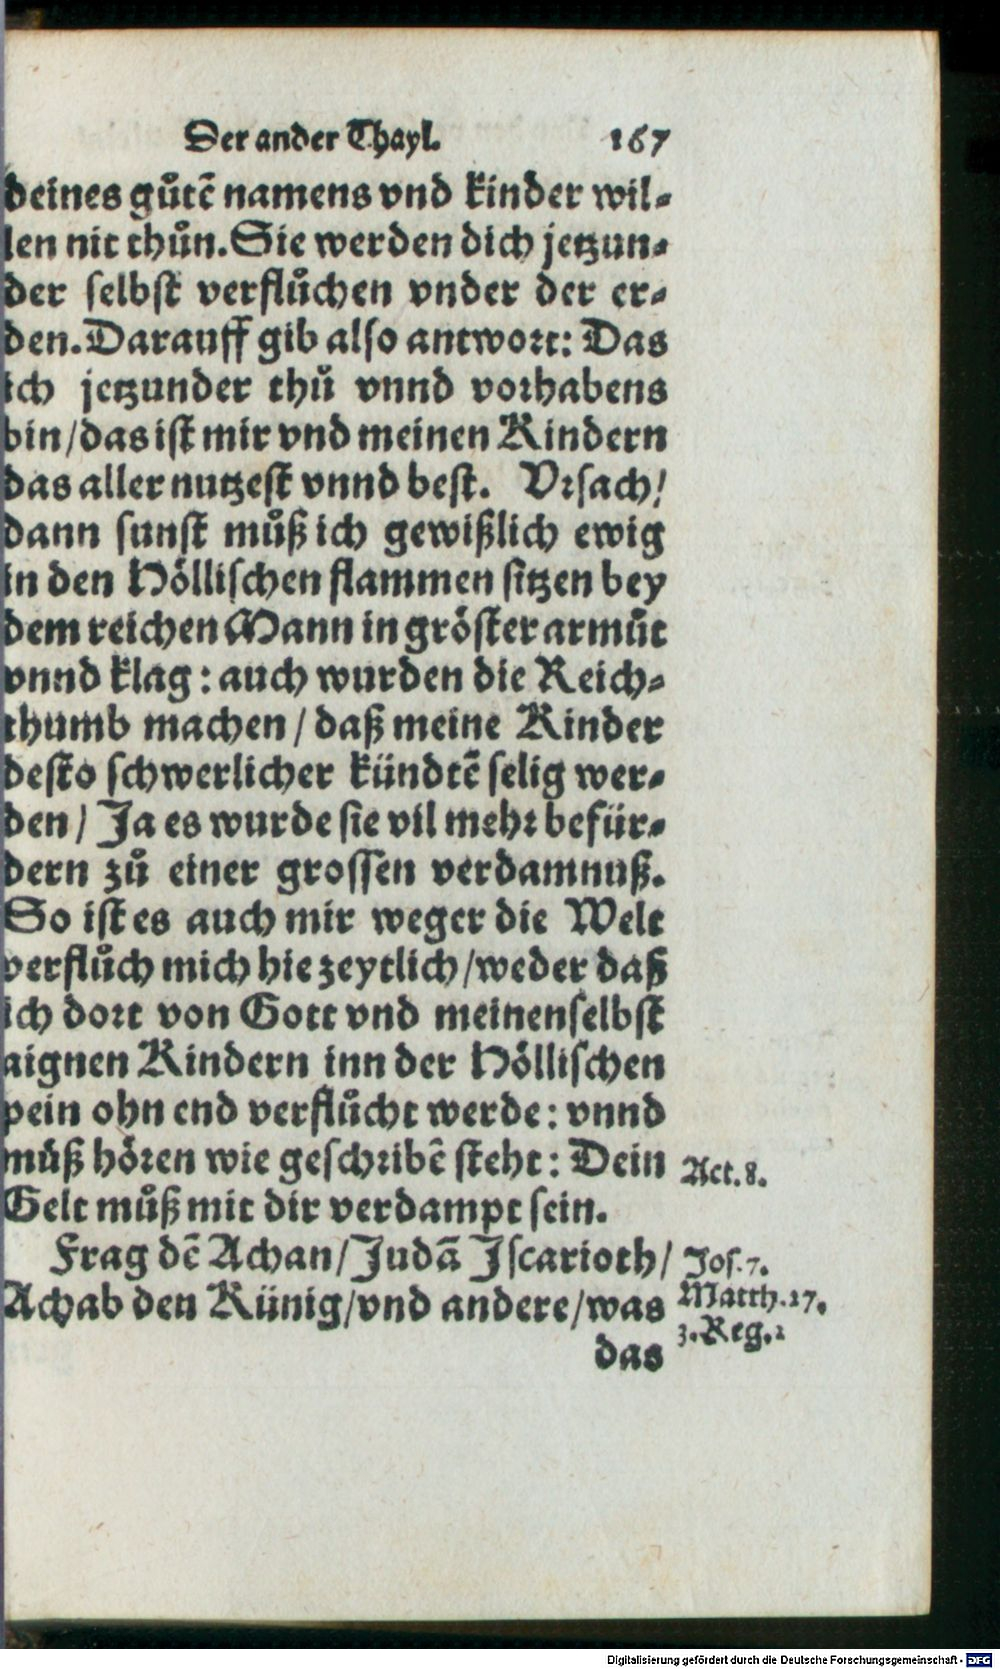 Der ander Thayl. 167
deines gůtẽ namens vnd kinder wil-
len nit thůn. Sie werden dich jetzun-
der selbst verflůchen vnder der er-
den. Darauff gib also antwort: Das
ich jetzunder thů vnnd vorhabens
bin / das ist mir vnd meinen Kindern
das aller nutzest vnnd best. Vrsach /
dann sunst můß ich gewißlich ewig
in den Höllischen flammen sitzen bey
dem reichen Mann in gröster armůt
vnnd klag: auch wurden die Reich-
thumb machen / daß meine Kinder
desto schwerlicher kündtẽ selig wer-
den / Ja es wurde sie vil mehr befür-
dern zů einer grossen verdamnuß.
So ist es auch mir weger die Welt
verflůch mich hie zeytlich / weder daß
ich dort von Gott vnd meinen selbst
aignen Kindern inn der Höllischen
pein ohn end verflůcht werde: vnnd
můß hören wie geschribẽ steht: Dein Act. 8.
Gelt můß mit dir verdampt sein.
Frag dẽ Achan / Judã Iscarioth / Jos. 7.
Achab den Künig / vnd andere / was Matth. 27.
3. Reg. 2
das
Digitalisierung gefördert durch die Deutsche Forschungsgemeinschaft - DFG